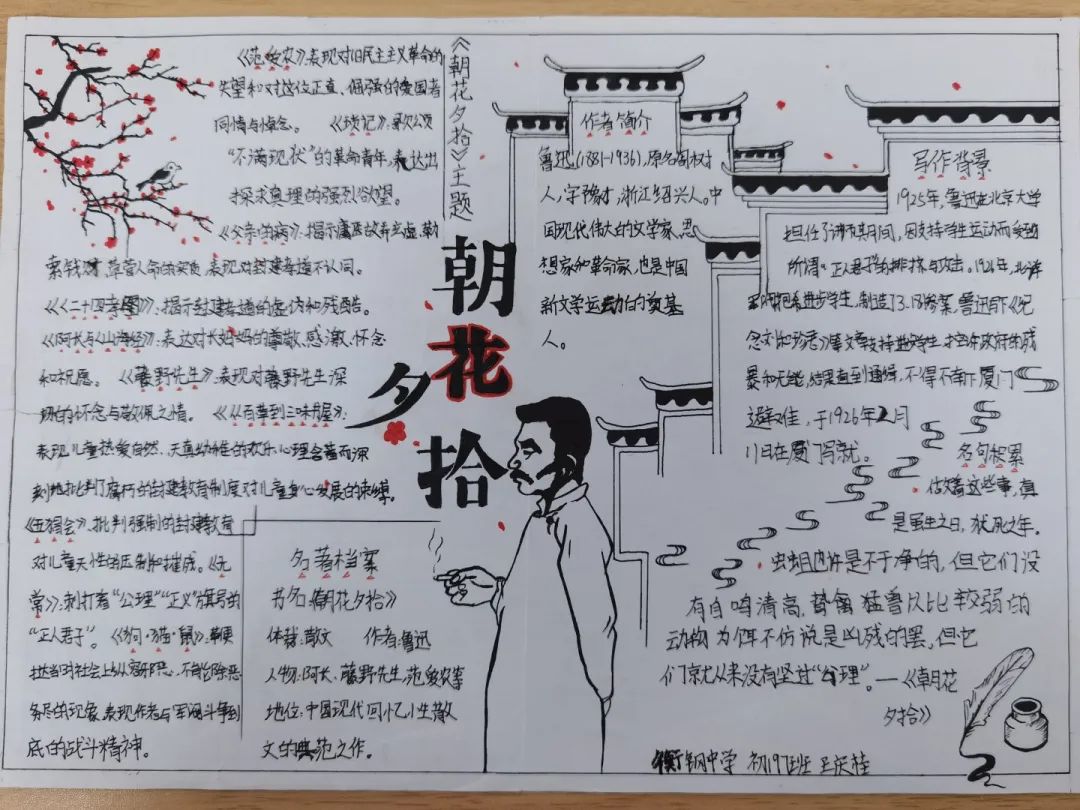 《朝花夕拾》主题
《范爱农》:表现对旧民主主义革命的
失望和对这位正直、倔强的爱国者
同情与悼念。 《琐记》:
“不满现状”的革命青年,表达出
探求真理的强烈欲望。
《父亲的病》:揭示庸医故弄玄虚,勒
索钱财,草菅人命的实质,表现对封建孝道不认同。
《《二十四孝图》》:揭示封建孝道的虚伪和残酷。
《阿长与《山海经》:表达对长妈妈的尊敬、感激、怀念
和祝愿。 《藤野先生》:表现对藤野先生深
切的怀念与敬佩之情。 《《从百草到三味书屋》:
表现儿童热爱自然、天真幼稚的欢乐心理含蓄而深
刻地批判了腐朽的封建教育制度对儿童身心发展的束缚。
《五猖会》:批判强制的封建教育
对儿童天性的压制和摧残。《无
常》:刺打着“公理”“正义”旗号的
“正人君子”。《狗·猫·鼠》:鞭
挞当时社会上
务尽的现象,表现作者与军阀斗争到
底的战斗精神。
朝
花
夕
拾
名著档案
书名:《朝花夕拾》
体裁:散文 作者:鲁迅
人物:阿长、藤野先生,范爱农等
地位:中国现代回忆性散
文的典范之作。
作者简介
鲁迅(1881-1936),原名周树
人,字豫才,浙江绍兴人。中
国现代伟大的文学家、思
想家和革命家,也是中国
新文学运动的奠基
人。
写作背景
1925年,鲁迅在北京大学
担任了讲师其期间,因支持学生运动而受到
所谓“正人君子”的排挤与攻击。1926年,北洋
军阀枪杀进步学生,制造了3.18惨案,鲁迅写下《纪
念刘和珍君》等文章支持进步学生,控当年政府的残
暴和无能,结果遭到通缉,不得不南下厦门
避难住,于1926年2月
11日在厦门写就。
名句积累
做着这些事,真
是虽生之日,犹死之年。
虫蛆也许是不干净的,但它们没
有自鸣清高,鸷禽猛兽以比较弱的
动物为饵不仿说是凶残的罢,但它
们就从来没有竖过“公理”。—《朝花
夕拾》
衡钢中学 初197班